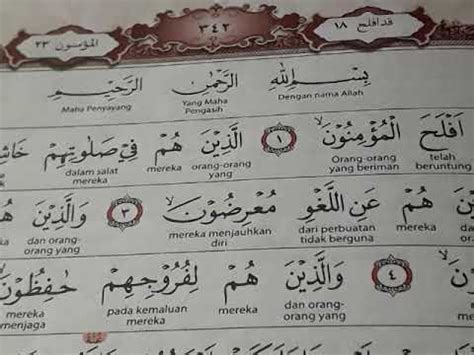 قد افلح ١٨ ٣٤٢ المؤمنون ٢٣
بِسْمِ اللّٰهِ الرَّحْمٰنِ الرَّحِيْمِ
Dengan nama Allah Yang Maha Pengasih Maha Penyayang
اَفْلَحَ الْمُؤْمِنُوْنَۙ ١ الَّذِيْنَ هُمْ فِيْ صَلَاتِهِمْ
telah beruntung Orang-orang yang beriman orang-orang yang mereka dalam salat mereka
هُمْ عَنِ اللَّغْوِ مُعْرِضُوْنَۙ ٣ وَالَّذِيْنَ
mereka dari perbuatan tidak berguna mereka menjauhkan diri dan orang-orang yang
٤ وَالَّذِيْنَ هُمْ لِفُرُوْجِهِمْ حٰفِظُوْنَ
dan orang-orang yang mereka pada kemaluan mereka mereka menjaga